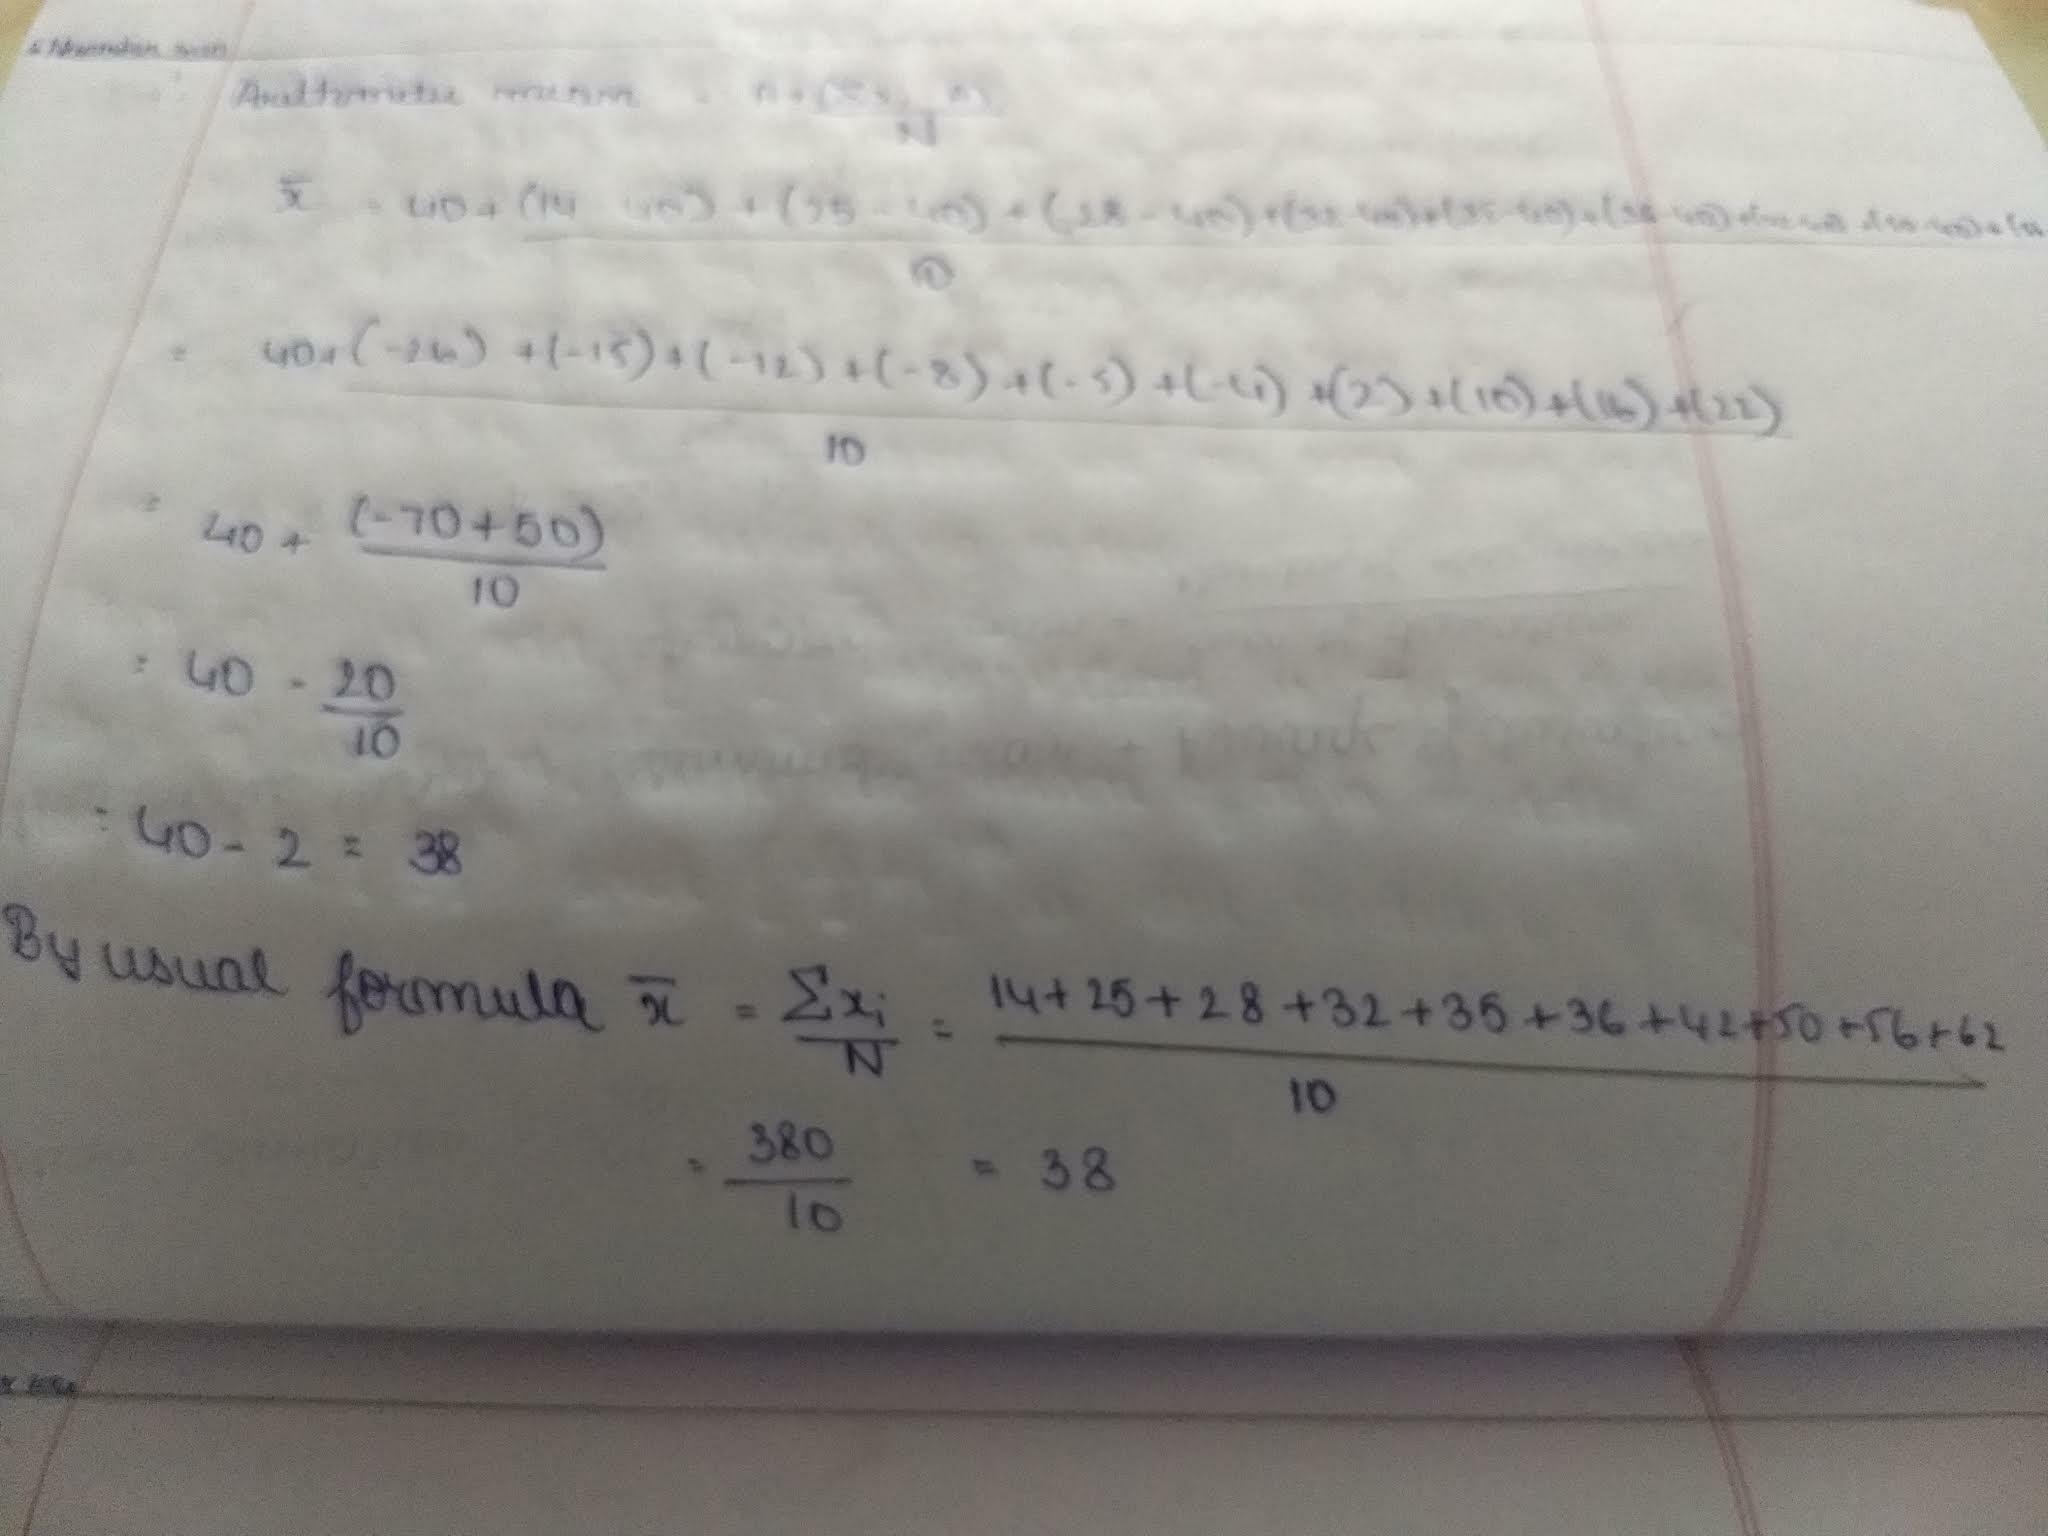 Arithmetic mean = A + (Σxi - A)
N
x̄ = 40 + (14 - 40) + (25 - 40) + (28 - 40) + (32-40) + (35-40) + (36-40) + (42-40) + (50-40) + (56
10
= 40 + (-26) + (-15) + (-12) + (-8) + (-5) + (-4) + (2) + (10) + (16) + (22)
10
= 40 + (-70+50)
10
= 40 - 20
10
= 40 - 2 = 38
By usual formula x̄ = Σxi = 14+25+28+32+35+36+42+50+56+62
N 10
= 380 = 38
10